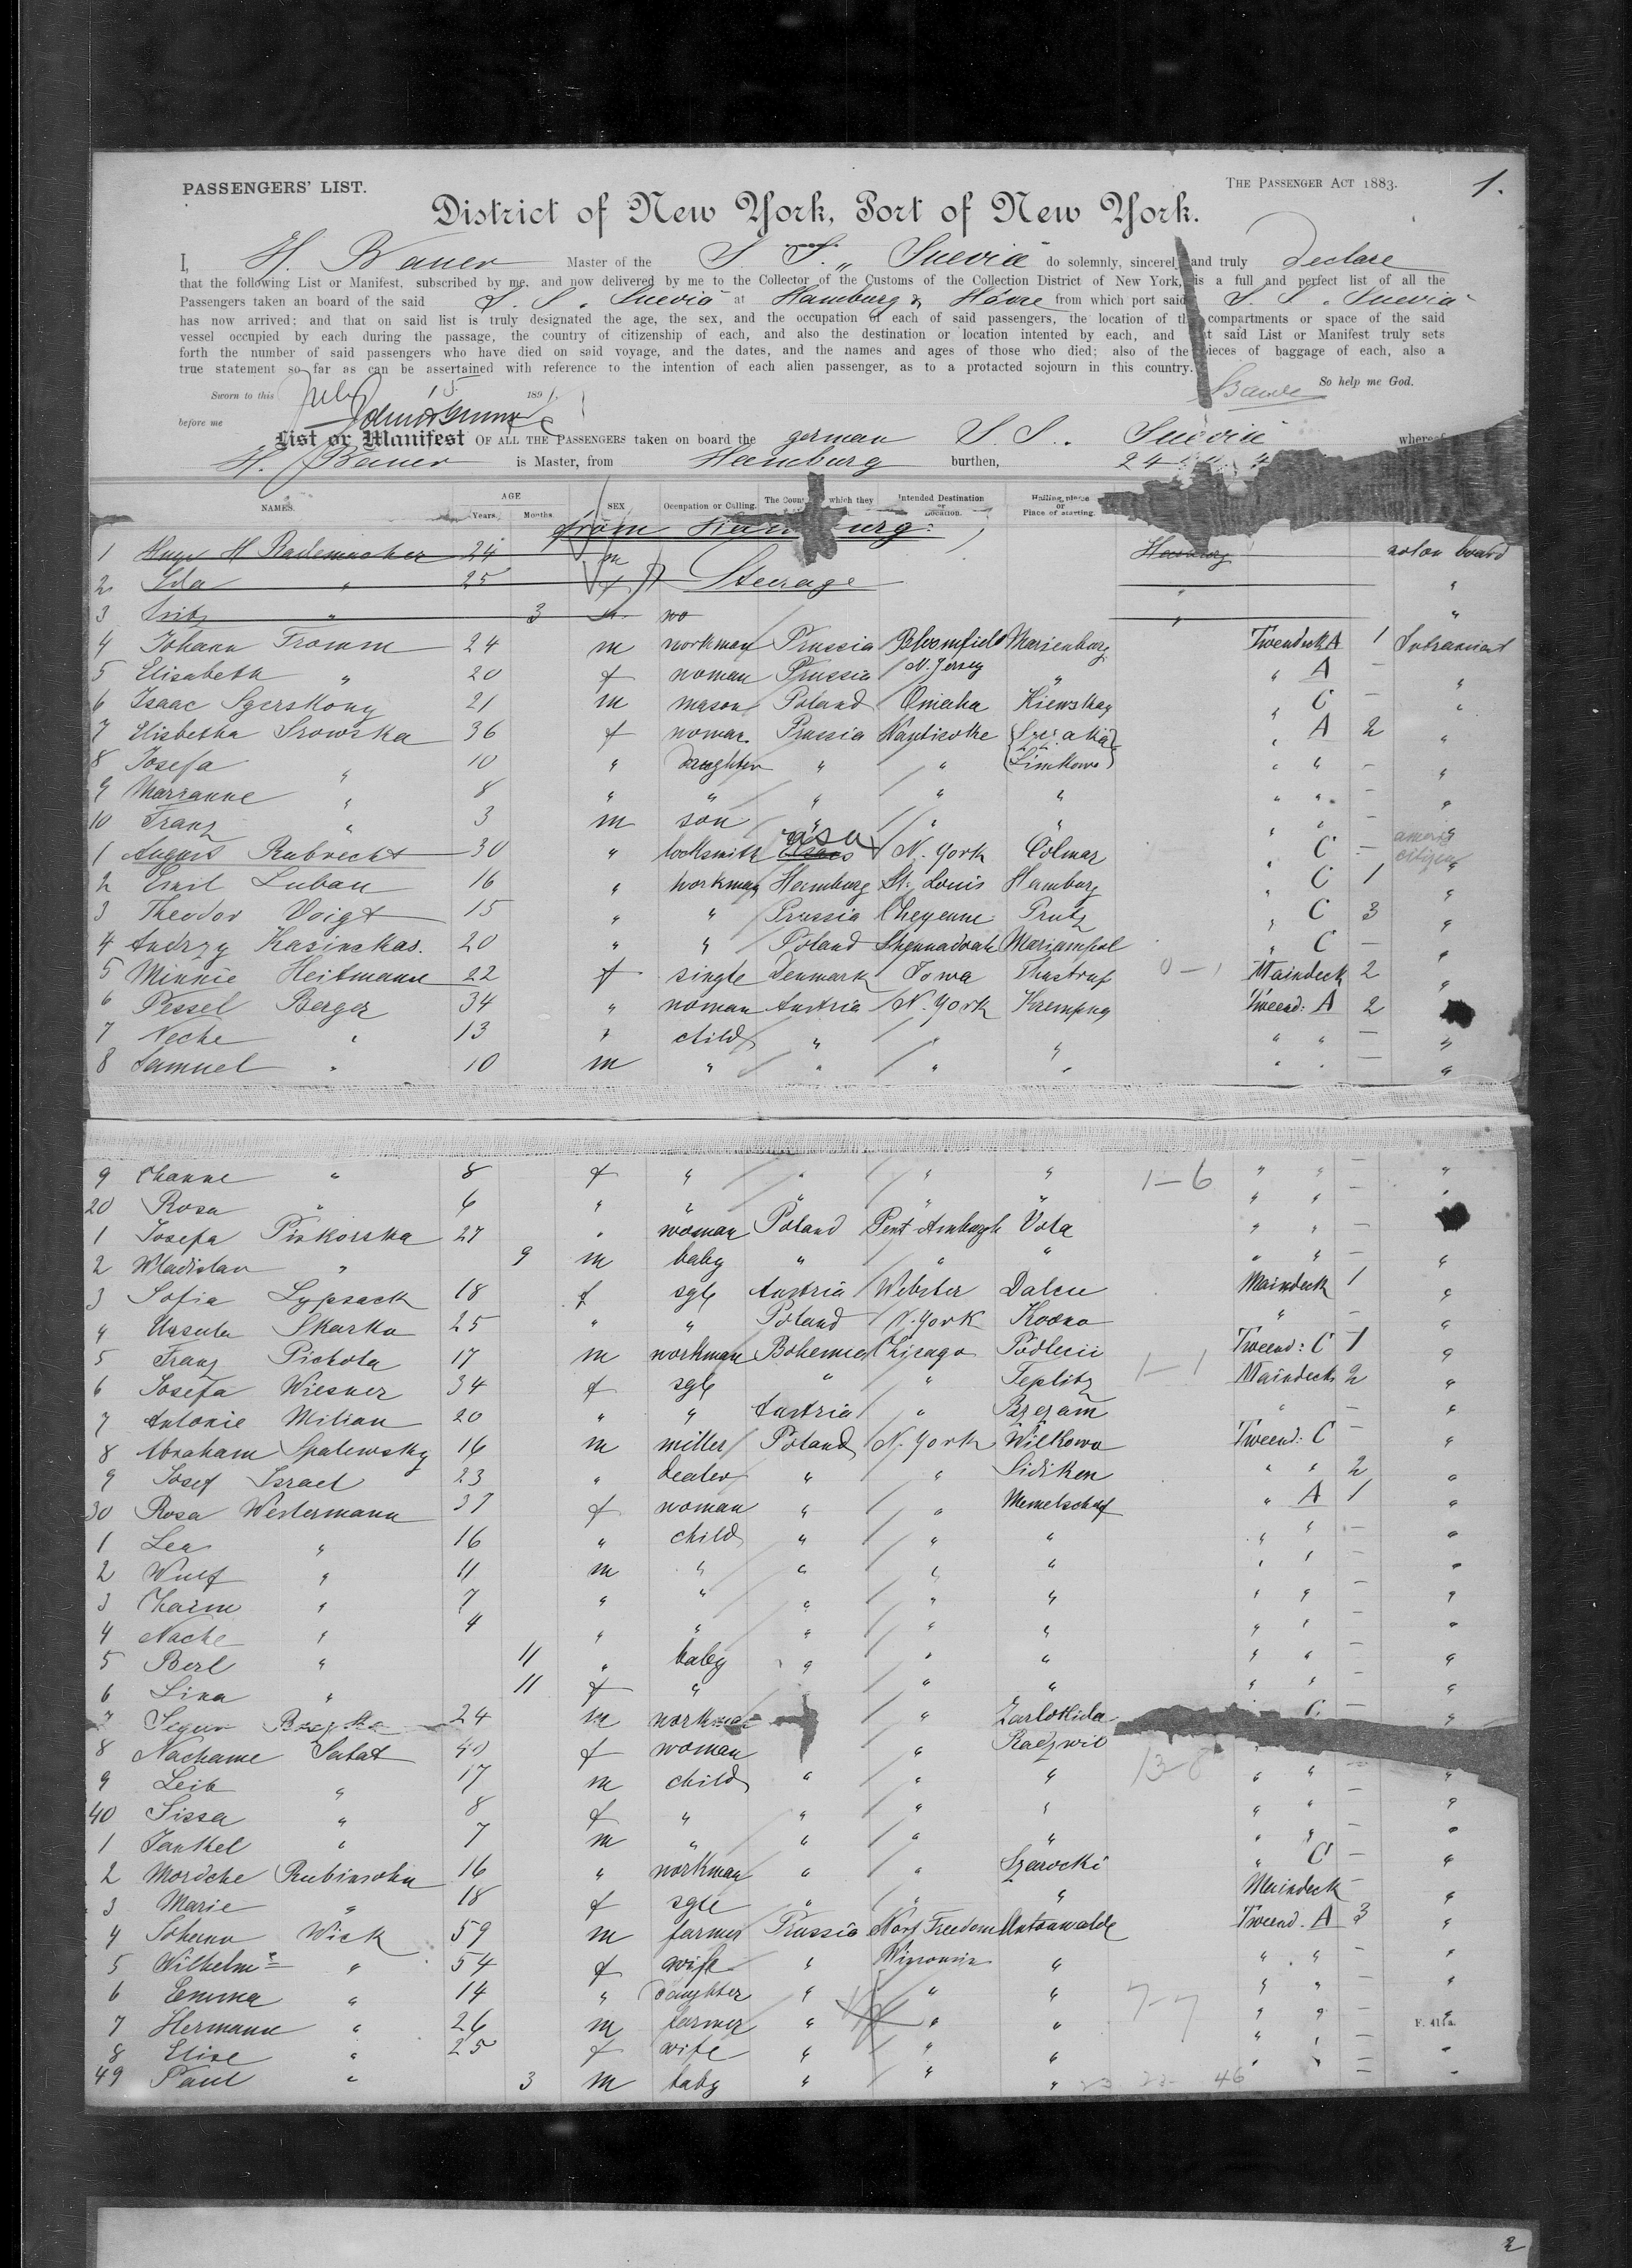 PASSENGERS' LIST.
THE PASSENGER ACT 1883.
1.
District of New York, Port of New York.
I, H. Bauer Master of the S. S. „ Suevia do solemnly, sincerely and truly declare
that the following List or Manifest, subscribed by me, and now delivered by me to the Collector of the Customs of the Collection District of New York, is a full and perfect list of all the
Passengers taken an board of the said S. S. „ Suevia" at Hamburg & Havre from which port said S. S. „ Suevia"
has now arrived; and that on said list is truly designated the age, the sex, and the occupation of each of said passengers, the location of the compartments or space of the said
vessel occupied by each during the passage, the country of citizenship of each, and also the destination or location intented by each, and at said List or Manifest truly sets
forth the number of said passengers who have died on said voyage, and the dates, and the names and ages of those who died; also of the pieces of baggage of each, also a
true statement so far as can be assertained with reference to the intention of each alien passenger, as to a protacted sojourn in this country.
So help me God.
Sworn to this July 15 1891.
Bauer
before me
List or Manifest OF ALL THE PASSENGERS taken on board the german S. S. Suevia whereof
H. Bauer is Master, from Hamburg burthen, 24
NAMES. AGE Years. Months. SEX Occupation or Calling. The Coun which they Intended Destination or Location. Hailing place or Place of starting.
from Hamburg:
1 Hugo H Rademacher 24 m Hamburg not on board
2 Ida " 25 f Steerage " "
3 Fritz " 3 m no " "
4 Johann Fromm 24 m workman Prussia Bloomfield Marienburg Tweendeck A 1
5 Elisabeth " 20 f woman Prussia N. Jersey " " A — "
6 Isaac Sgerskony 21 m mason Poland Omaha Kiewskay " C — "
7 Elisbetha Srowska 36 f woman Prussia Nantikoke " A 2 "
8 Josefa " 10 " daughter " " (Limkowo) " " — "
9 Marianne " 8 " " " " " " " — "
10 Franz " 3 m son " " " " " — "
1 August Rubrecht 30 " locksmith usa N. York Colmar " C — americ citizen
2 Emil Luban 16 " workman Hamburg St. Louis Hamburg " C 1 "
3 Theodor Voigt 15 " " Prussia Cheyenne Prutz " C 3 "
4 Andrzy Kasinckas. 20 " " Poland Shennadoah Mariampol " C — "
5 Minnie Heitmann 22 f single Denmark Iowa Thastrup 0—1 Maindeck 2 "
6 Pessel Berger 34 " woman Austria N. York Krempna Tweend: A 2
7 Neche " 13 " child " " " " " — "
8 Samuel " 10 m " " " " " " — "
9 Channe " 8 f " " " " 1—6 " " — "
20 Rosa " 6 " " " " " " " — "
1 Josefa Piskorska 27 " woman Poland Vola " " —
2 Wladislav " 9 m baby " " " " " — "
3 Sofia Lypsack 18 f sgle Austria Webster Dalcu Maindeck 1 "
4 Ursula Skarka 25 " " Poland N. York Kowno " — "
5 Franz Pichota 17 m workman Bohemia Chicago Podlecii Tweend: C 1 "
6 Josefa Wiesner 34 f sgle " " Teplitz 1—1 Maindeck 2 "
7 Antonie Milian 20 " " Austria " Brezam " — "
8 Abraham Spalewsky 16 m miller Poland N. York Wilkowo Tweend: C — "
9 Josef Israel 23 " dealer " " Sidiken " " 2 "
30 Rosa Westermann 37 f woman " " Memelschof " A 1 "
1 Lea " 16 " child " " " " " — "
2 Wulf " 11 m " " " " " " — "
3 Chaim " 7 " " " " " " " — "
4 Nache " 4 " " " " " " " — "
5 Berl " 11 " baby " " " " " — "
6 Lina " 11 f " " " " " — "
7 24 m workman " Zarlokida C. — "
8 Nachame Sabat 40 f woman " Radzwil
9 Leib " 17 m child " " " 13—8 " " — "
40 Sissa " 8 f " " " " " " — "
1 Jankel " 7 m " " " " " " — "
2 Mordche Rubinsohn 16 " workman " " Szarocki " C — "
3 Marie " 18 f sgle " " " Maindeck — "
4 Johann Wick 59 m farmer Prussia Nort Freedom Antonwalde Tweend. A 3 "
5 Wilhelme " 54 f wife " Wisconsin " " " — "
6 Emma " 14 " daughter " " " 7—7 " " — "
7 Hermann " 26 m farmer " " " " " — "
F. 411a.
8 Elise " 25 f wife " " " " " — "
49 Paul " 3 m baby " " " 23 23 46 " " — "
2